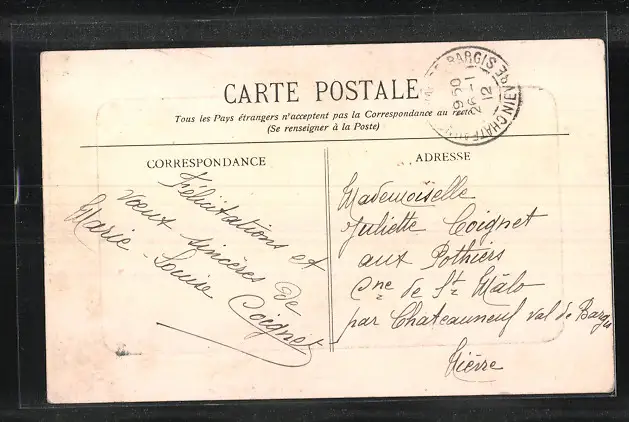 CARTE POSTALE
Tous les Pays étrangers n'acceptent pas la Correspondance au recto
(Se renseigner à la Poste)
CORRESPONDANCE
Félicitations et
vœux sincères de
Marie-Louise Coignet
ADRESSE
Mademoiselle
Juliette Coignet
aux Pothiers
Cne de St Mâlo
par Chateauneuf val de Bargis
Nièvre
BARGIS
9 50
26 -1
12